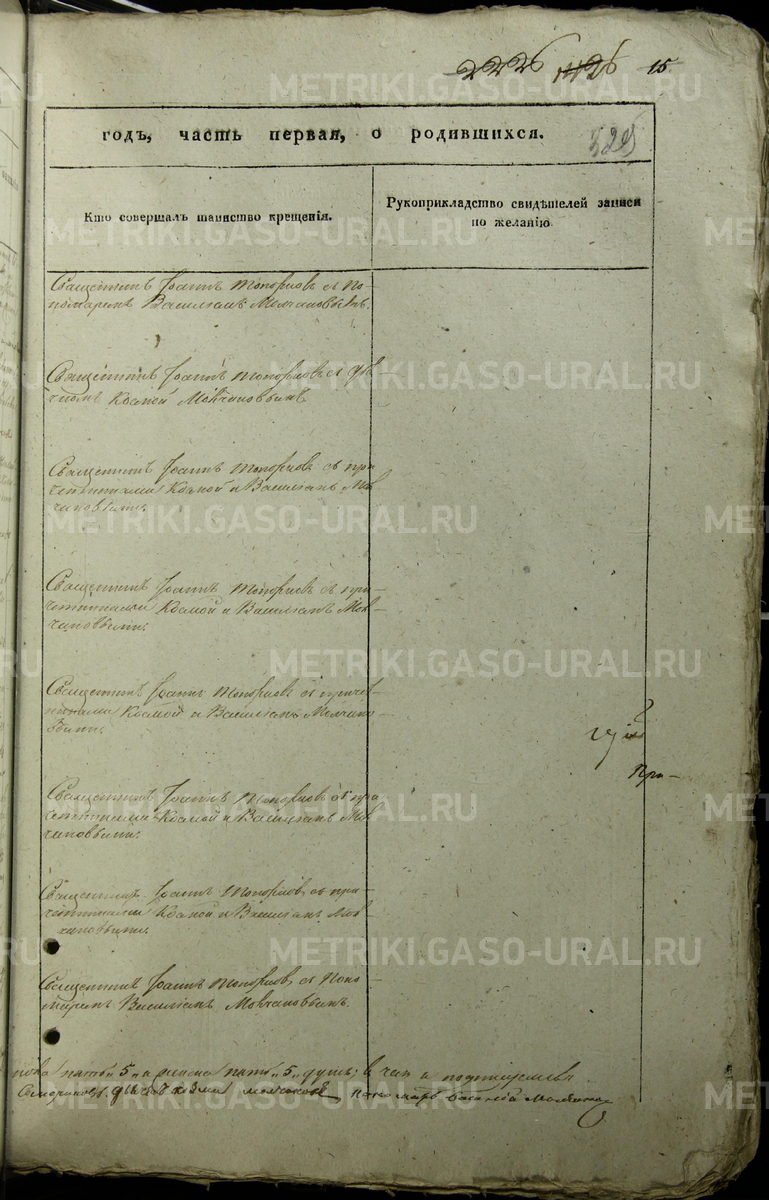 2226 1126 15
годъ, часть первая, о родившихся.
525
Кто совершалъ таинство крещенія.
Рукоприкладство свидѣтелей записи
по желанію.
Священникъ Іоаннъ Топорковъ съ По-
номаремъ Василіемъ Молчановымъ.
Священникъ Іоаннъ Топорковъ съ Дья-
чкомъ Космой Молчановымъ
Священникъ Іоаннъ Топорковъ съ при
четниками Космой и Василіемъ Мол
чановыми.
Священникъ Іоаннъ Топорковъ съ при-
четниками Космой и Василіемъ Мол-
чановыми.
Священникъ Іоаннъ Топорковъ съ причет-
никами Космой и Василіемъ Молчано-
выми.
При-
Священникъ Іоаннъ Топорковъ съ при
четниками Космой и Василіемъ Мол
чановыми.
Священникъ Іоаннъ Топорковъ съ при-
четниками Космой и Василіемъ Мол-
чановыми.
Священникъ Іоаннъ Топорковъ съ Поно-
маремъ Василіемъ Молчановымъ.
пола пять „5„ а женска пять „5„ душъ; въ чемъ и подписуемся
дьячокъ Козма Молчановъ пономарь Василій Молчановъ
METRIKI.GASO-URAL.RU